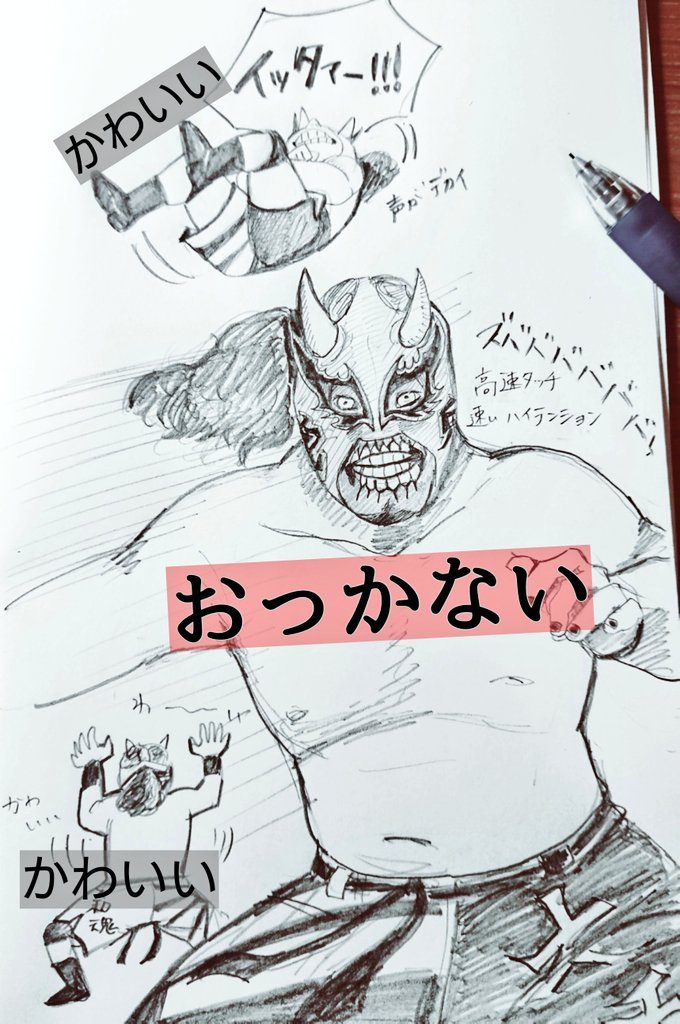 かわいい
イッタァー!!!
声がデカイ
ズババババババ!
高速タッチ
速いハイテンション
おっかない
わ〜〜
かわいい
かわいい
魂